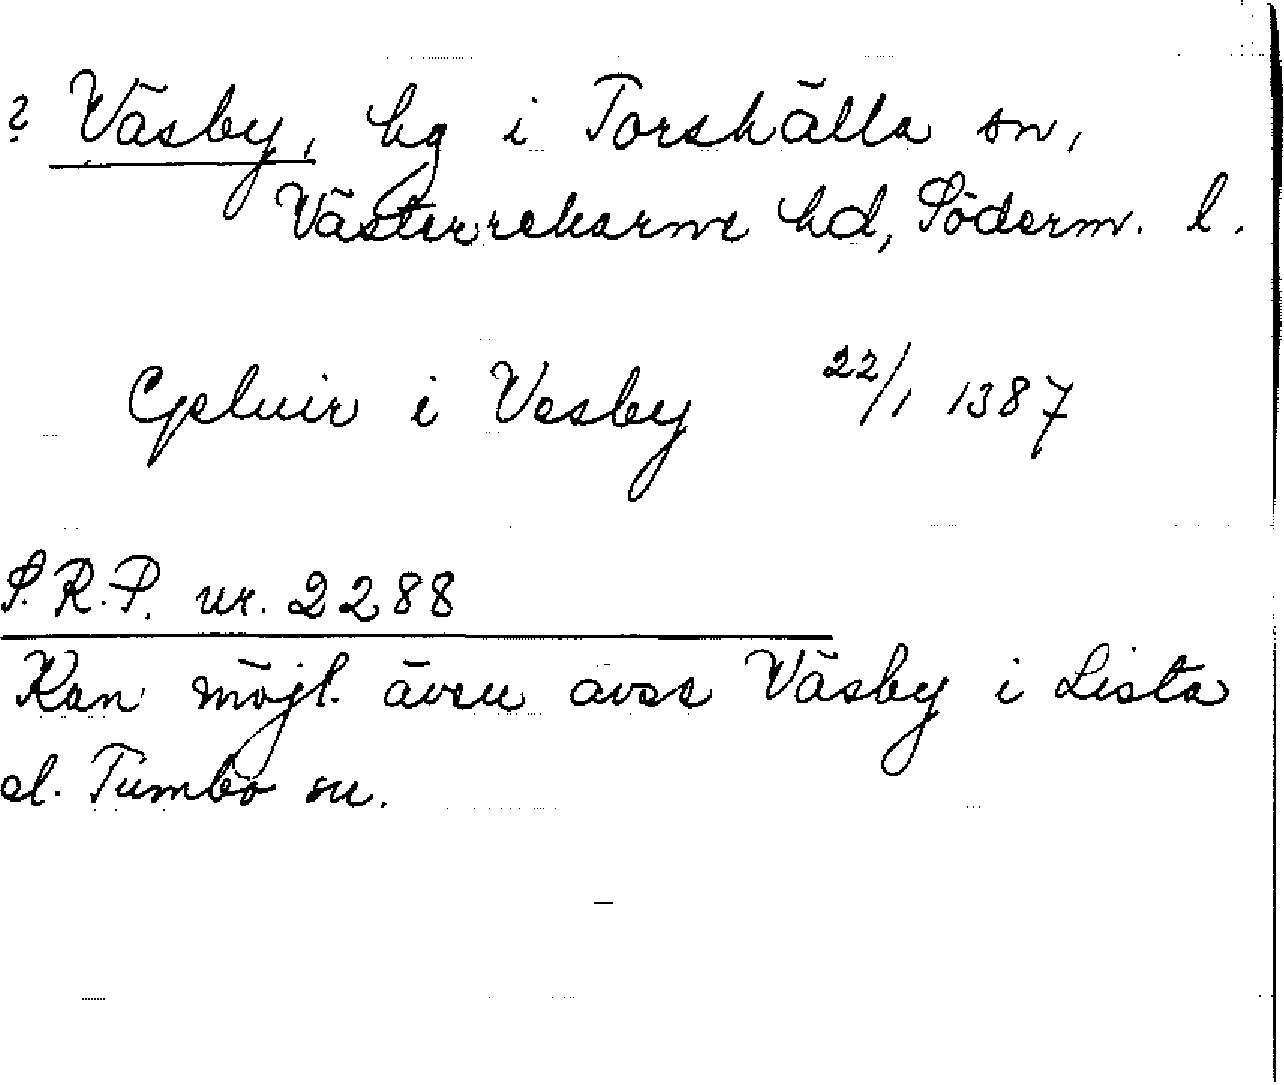 ? Väsby, hg i Torshälla sn,
Västerrekarne hd, Söderm. l.
i Vesby 22/1 1387
S.R.P. nr. 2288
Kan möjl. även avse Väsby i Lista
el. Tumbo sn.